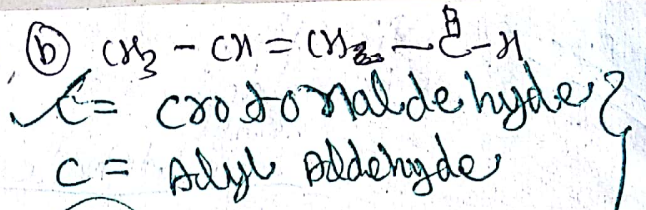 (b) CH3 - CH = CH - C - H
C = crotonaldehyde
C = Allyl Aldehyde